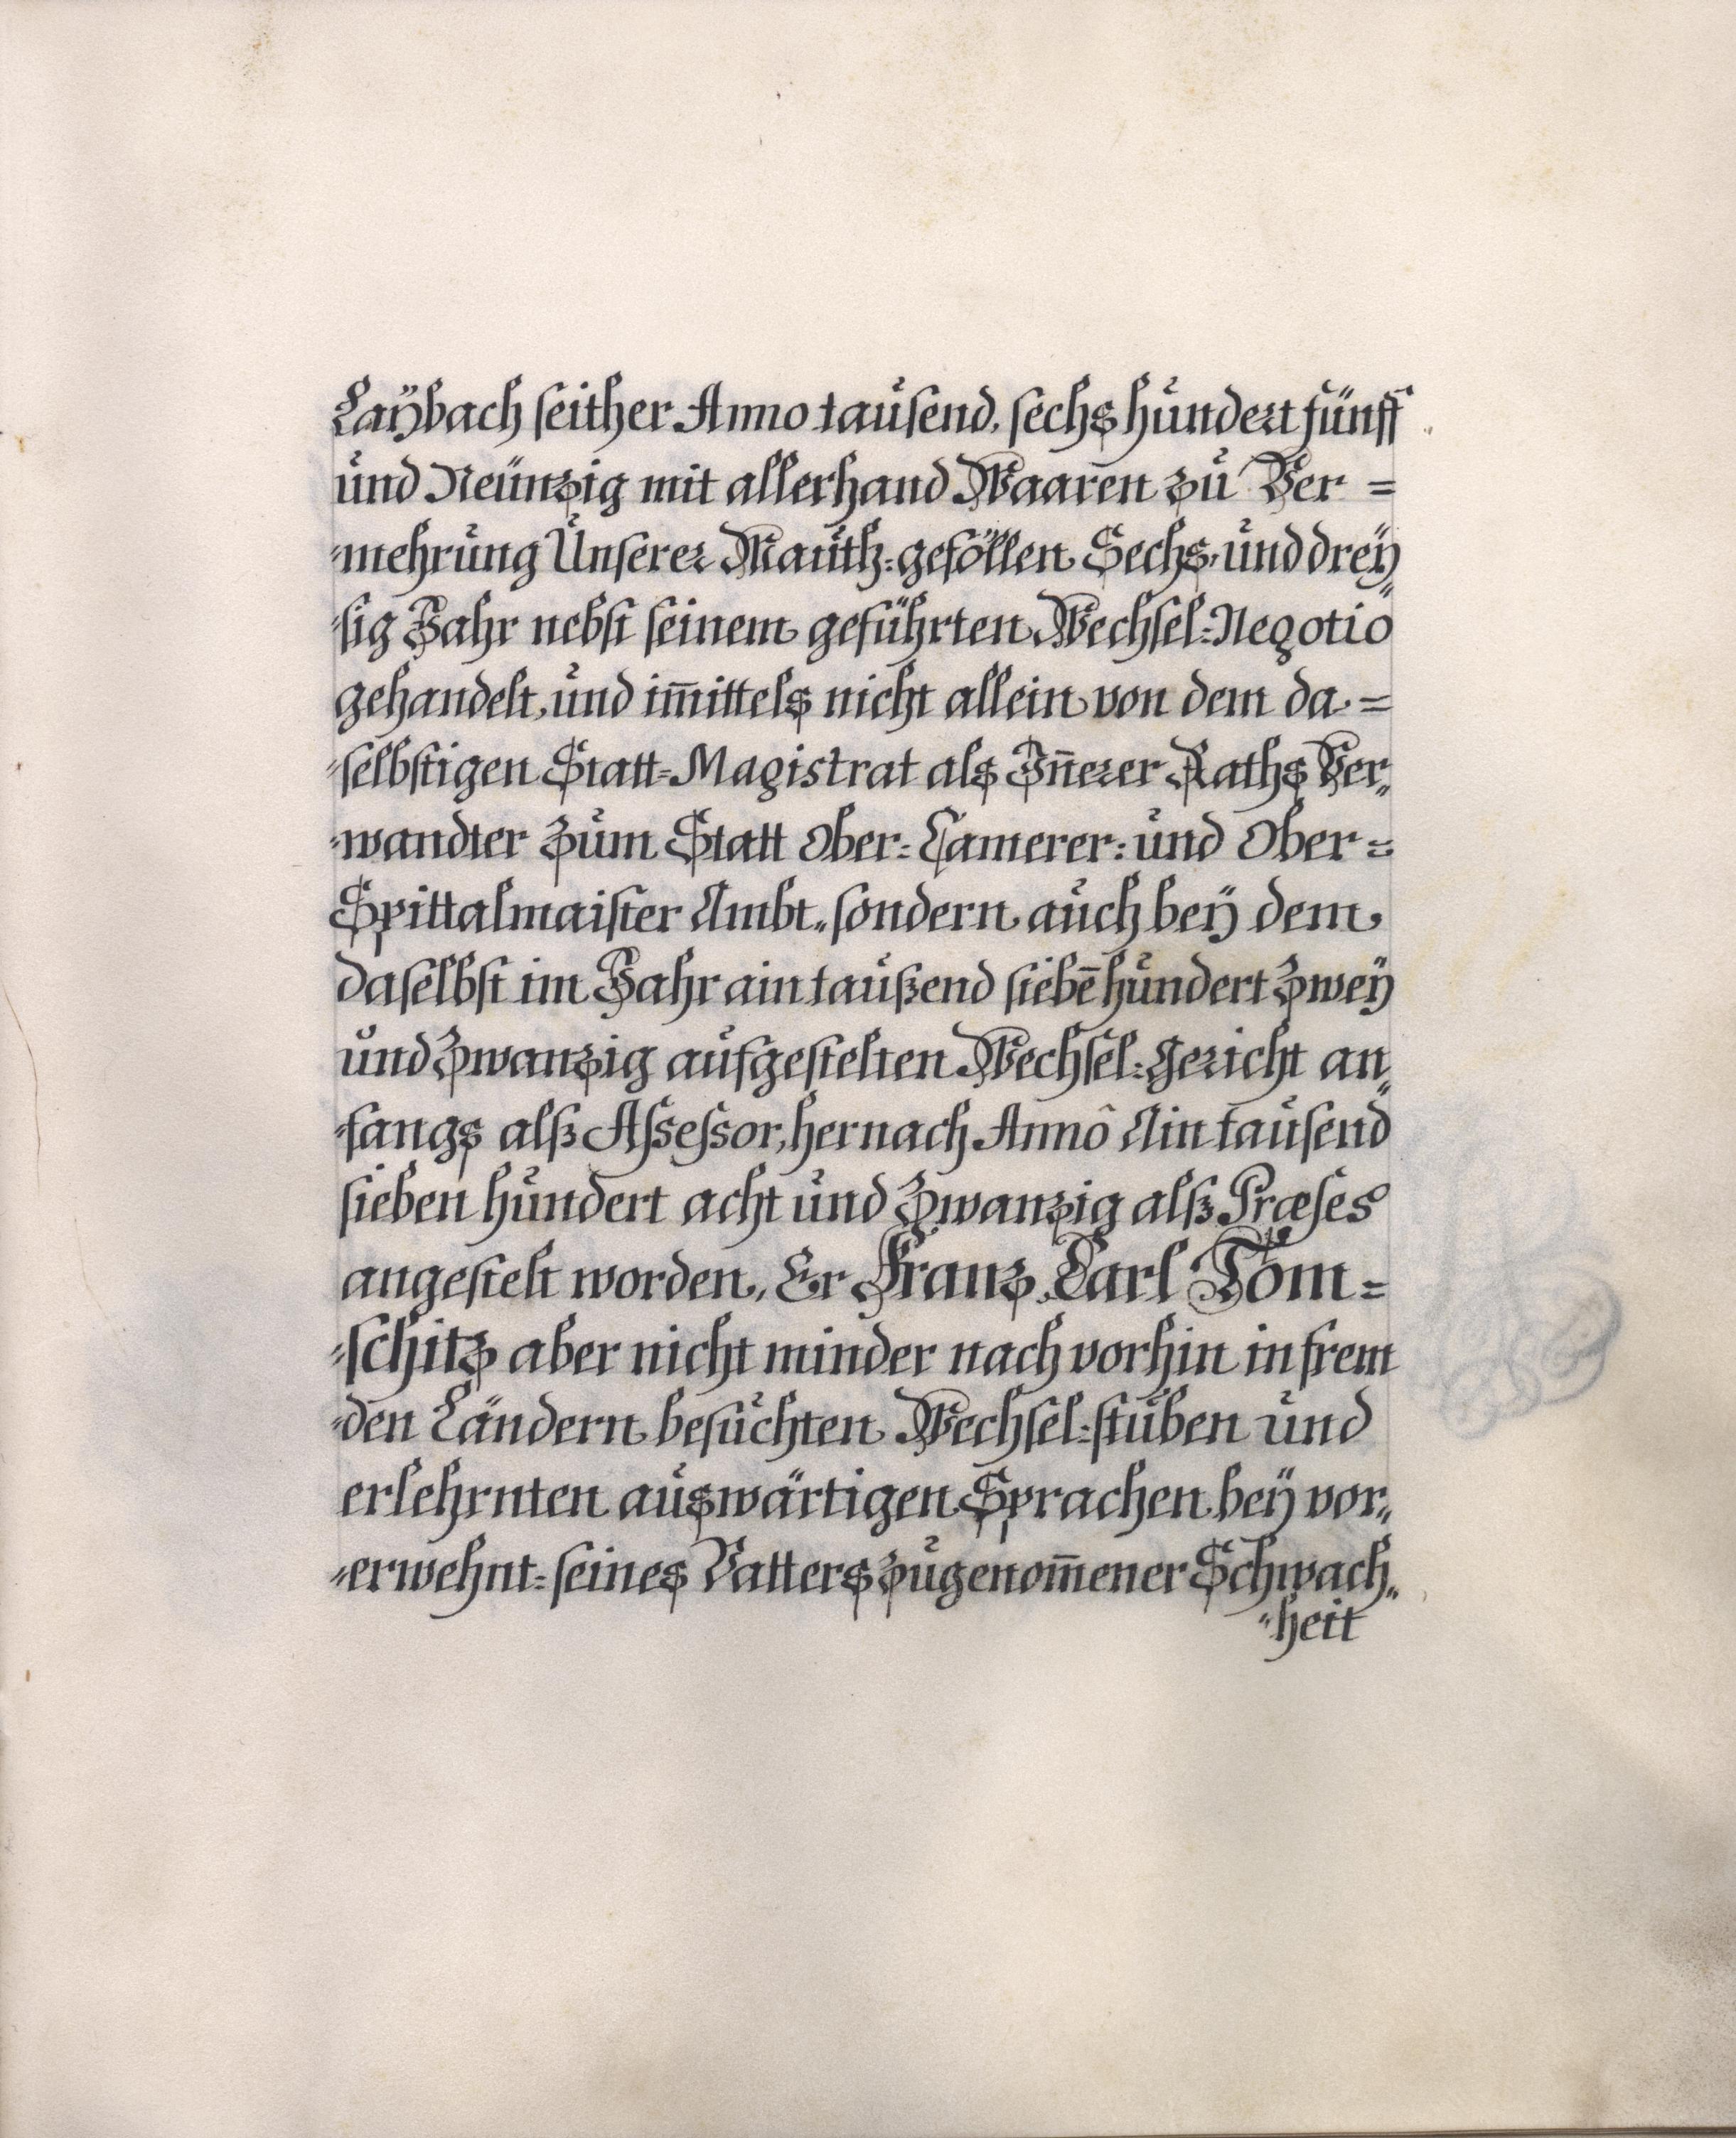 Laÿbach seither Anno tausend, sechs hundert fünff
und Neünzig mit allerhand Waaren zu Ver =
„mehrung Unserer Mauth=geföllen Sechs, und dreÿ„
„sig Jahr nebst seinem geführten Wechsel=Negotio
gehandelt, und im̄ittels nicht allein von dem da =
„selbstigen Statt=Magistrat als In̄erer Raths Ver„
„wandter zum Statt Ober=Camerer= und Ober =
Spittalmaister Ambt„ sondern auch beÿ dem
daselbst im Jahr ain taußend siebē hundert zweÿ
und zwanzig aufgestelten Wechsel=Gericht an„
„fangs alß Assessor, hernach Annô Ain tausend
sieben hundert acht und zwanzig alß Præses
angestelt worden, Er Franz Carl Tom =
„schitz aber nicht minder nach vorhin in frem
„den Ländern besuchten Wechsel=stuben und
erlehrnten auswärtigen Sprachen beÿ vor„
„erwehnt= seines Vatters zugenom̄ener Schwach„
„heit